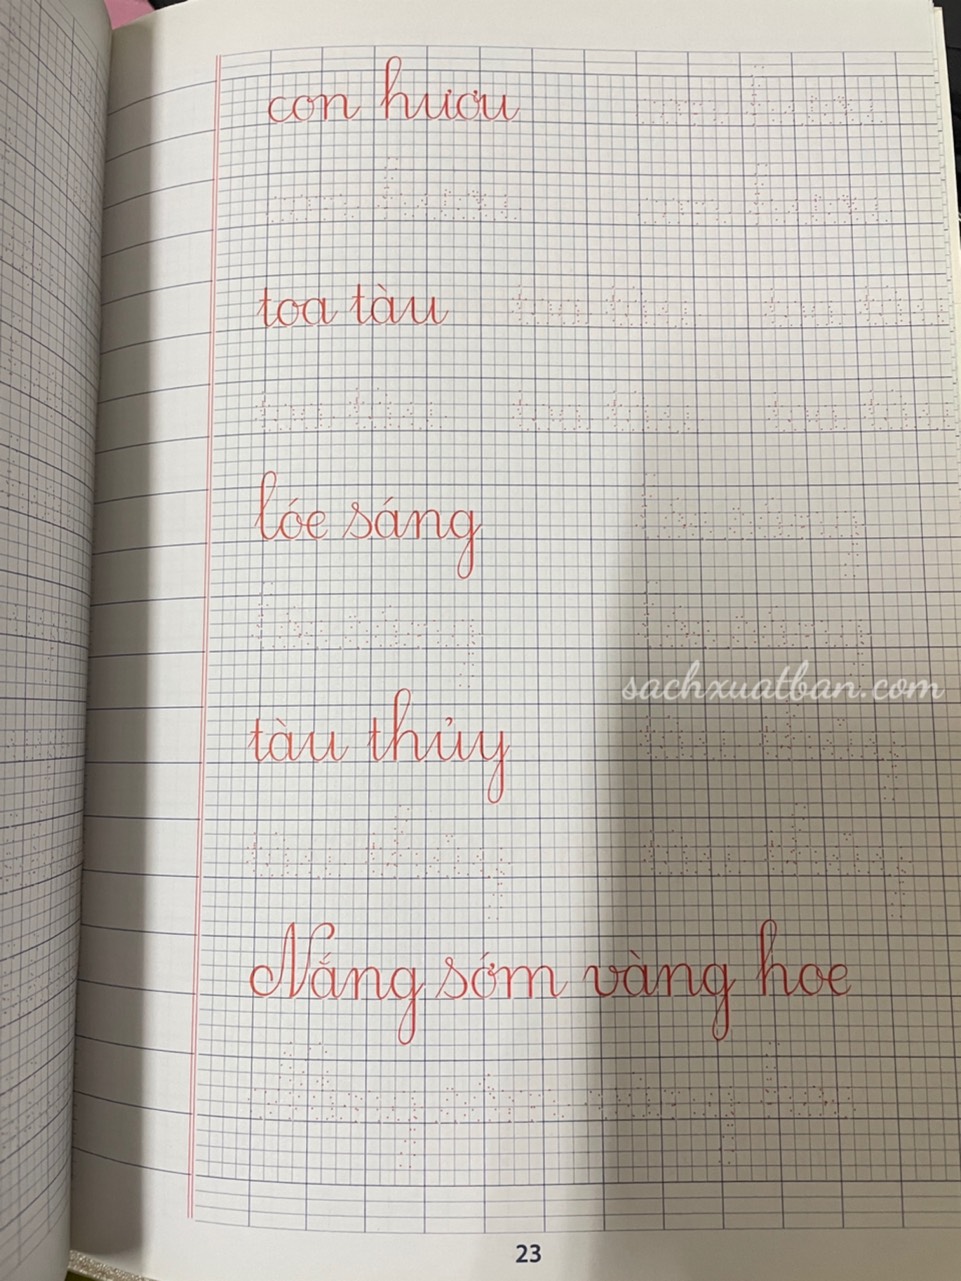 con hươu
toa tàu
lóe sáng
sachxuatban.com
tàu thủy
Nắng sớm vàng hoe
23